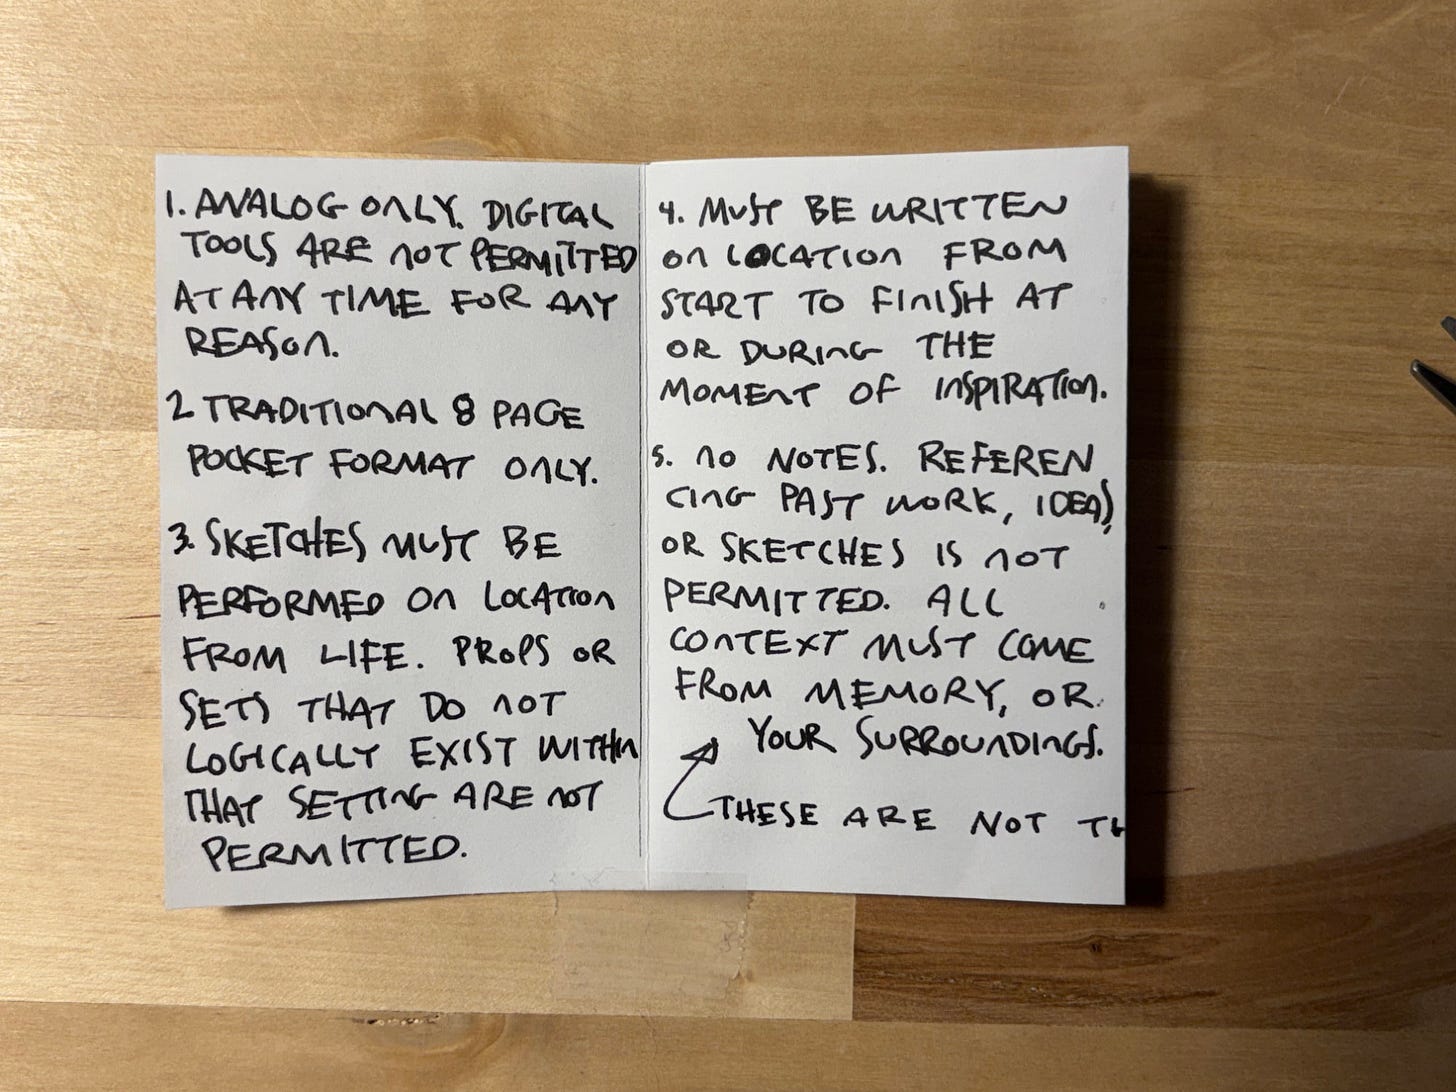 1. ANALOG ONLY. DIGITAL
TOOLS ARE NOT PERMITTED
AT ANY TIME FOR ANY
REASON.
2 TRADITIONAL 8 PAGE
POCKET FORMAT ONLY.
3. SKETCHES MUST BE
PERFORMED ON LOCATION
FROM LIFE. PROPS OR
SETS THAT DO NOT
LOGICALLY EXIST WITHIN
THAT SETTING ARE NOT
PERMITTED.
4. MUST BE WRITTEN
ON LOCATION FROM
START TO FINISH AT
OR DURING THE
MOMENT OF INSPIRATION.
5. NO NOTES. REFEREN
CING PAST WORK, IDEAS,
OR SKETCHES IS NOT
PERMITTED. ALL
CONTEXT MUST COME
FROM MEMORY, OR
YOUR SURROUNDINGS.
THESE ARE NOT